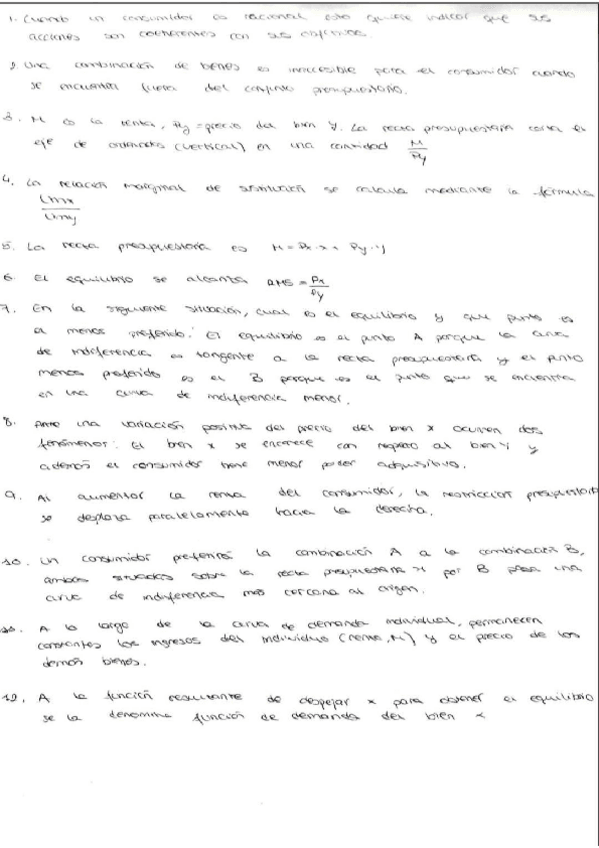 1. Cuando un consumidor es racional esto quiere indicar que sus
acciones son coherentes con sus objetivos.
2. Una combinación de bienes es inaccesible para el consumidor cuando
se encuentra fuera del conjunto presupuestario.
3. M es la renta, Py = precio del bien Y. La recta presupuestaria corta el
eje de ordenadas (vertical) en una cantidad M/Py
4. La relación marginal de sustitución se calcula mediante la fórmula
Umx/Umy
5. La recta presupuestaria es M = Px · x + Py · y
6. El equilibrio se alcanza RMS = Px/Py
7. En la siguiente situación, cual es el equilibrio y que punto es
el menos preferido: El equilibrio es el punto A porque la curva
de indiferencia es tangente a la recta presupuestaria y el punto
menos preferido es el B porque es el punto que se encuentra
en una curva de indiferencia menor.
8. Ante una variación positiva del precio del bien x ocurren dos
fenómenos: El bien x se encarece con respecto al bien Y y
además el consumidor tiene menor poder adquisitivo.
9. Al aumentar la renta del consumidor, la restricción presupuestaria
se desplaza paralelamente hacia la derecha.
10. Un consumidor preferirá la combinación A a la combinación B,
ambas situadas sobre la recta presupuestaria si por B pasa una
curva de indiferencia más cercana al origen.
A lo largo de la curva de demanda individual, permanecen
constantes los ingresos del individuo (renta, M) y el precio de los
demás bienes.
12. A la función resultante de despejar x para obtener el equilibrio
se la denomina función de demanda del bien x